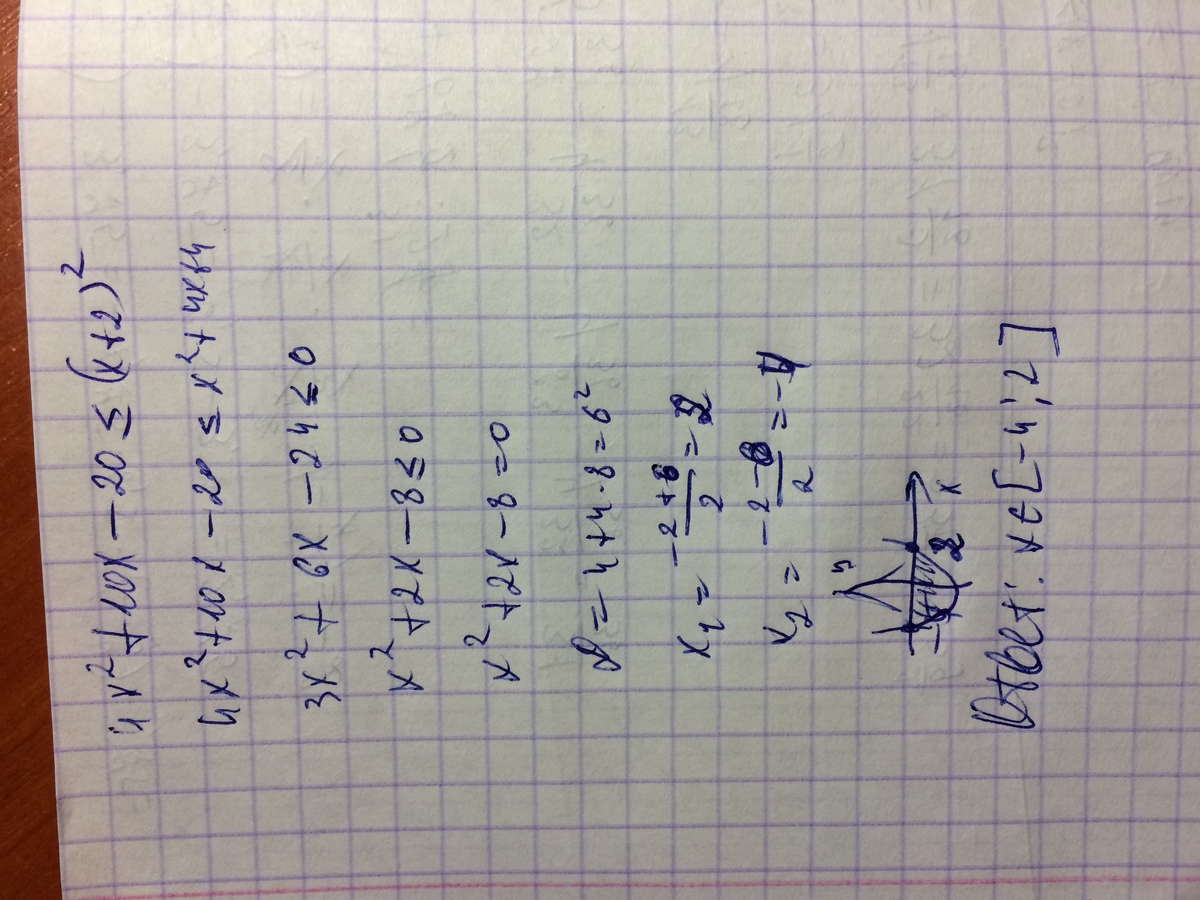 4x²+10x-20≤(x+2)²
4x²+10x-20≤x²+4x+4
3x²+6x-24≤0
x²+2x-8≤0
x²+2x-8=0
D=4+4·8=6²
x₁=(-2+6)/2=2
x₂=(-2-6)/2=-4
y
-4 2 x
Ответ: x∈[-4;2]